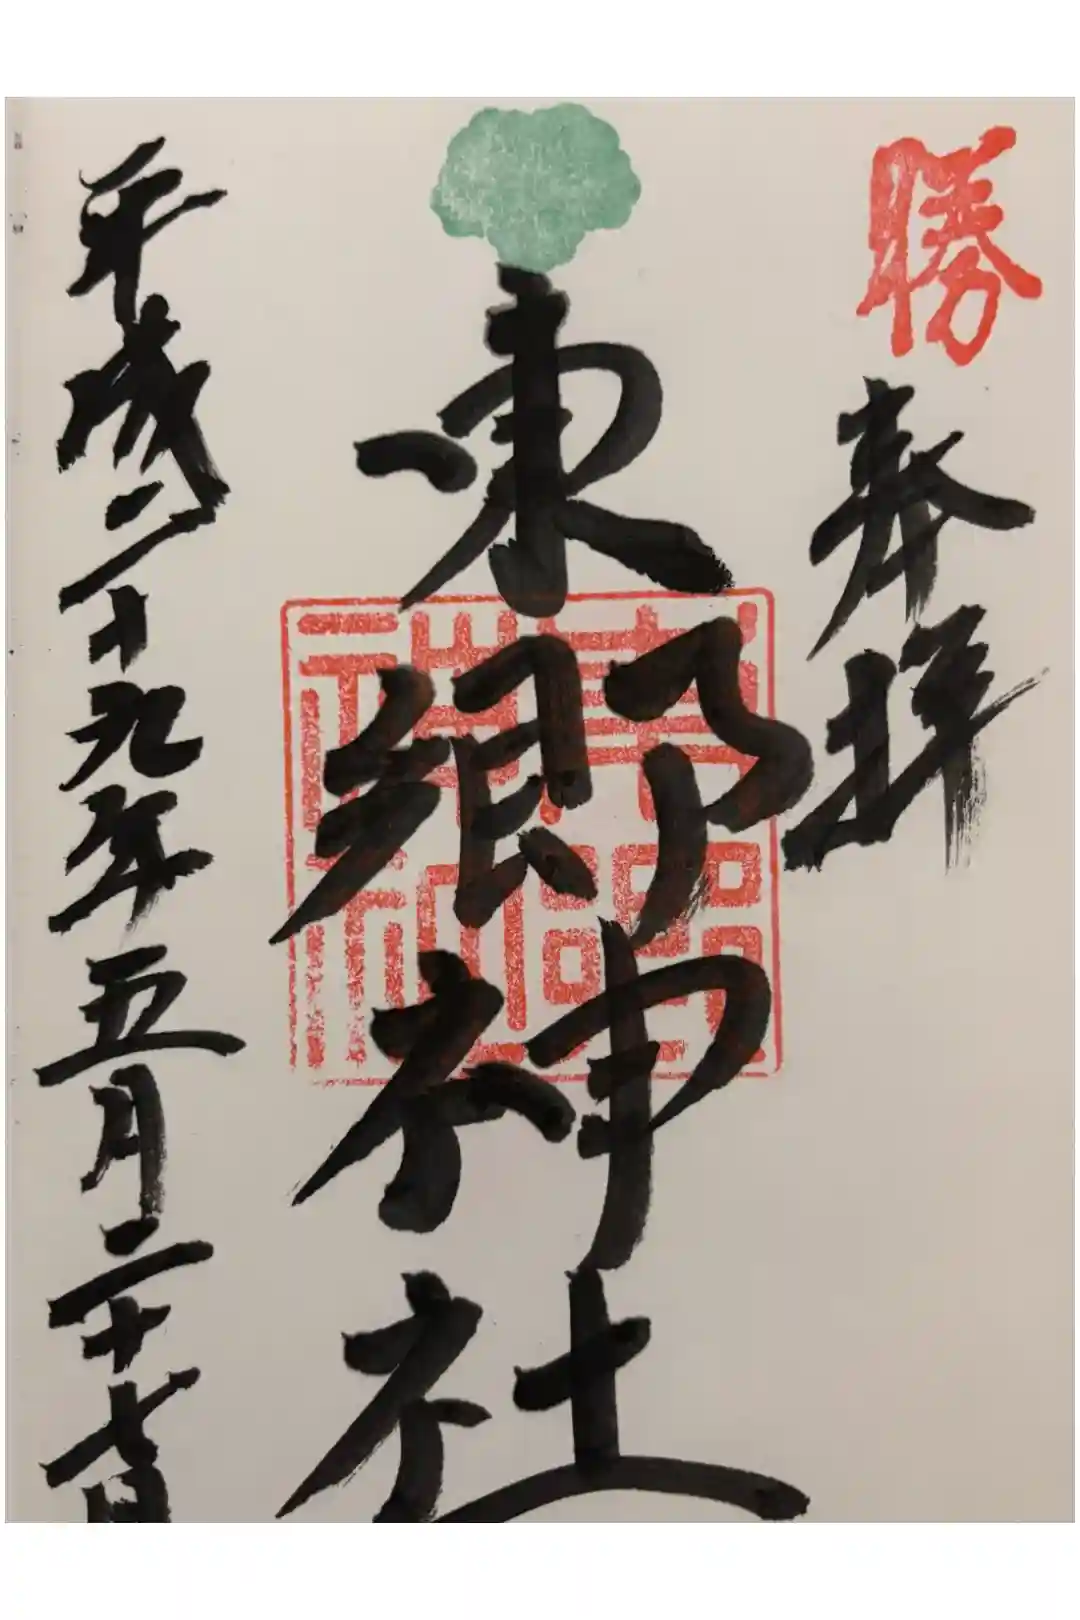 勝
奉拝
東郷神社
平成二十九年五月二十七日